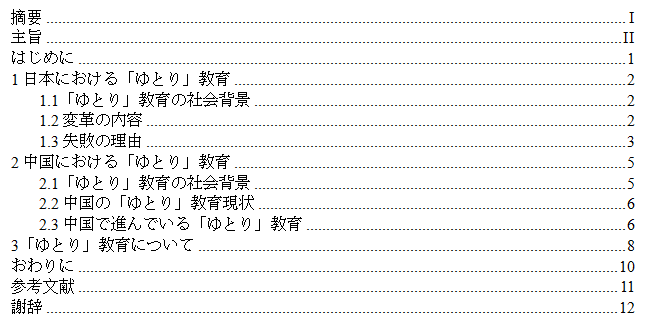 摘要 I
主旨 II
はじめに 1
1 日本における「ゆとり」教育 2
1.1「ゆとり」教育の社会背景 2
1.2 変革の内容 2
1.3 失敗の理由 3
2 中国における「ゆとり」教育 5
2.1「ゆとり」教育の社会背景 5
2.2 中国の「ゆとり」教育現状 6
2.3 中国で進んでいる「ゆとり」教育 6
3「ゆとり」教育について 8
おわりに 10
参考文献 11
謝辞 12